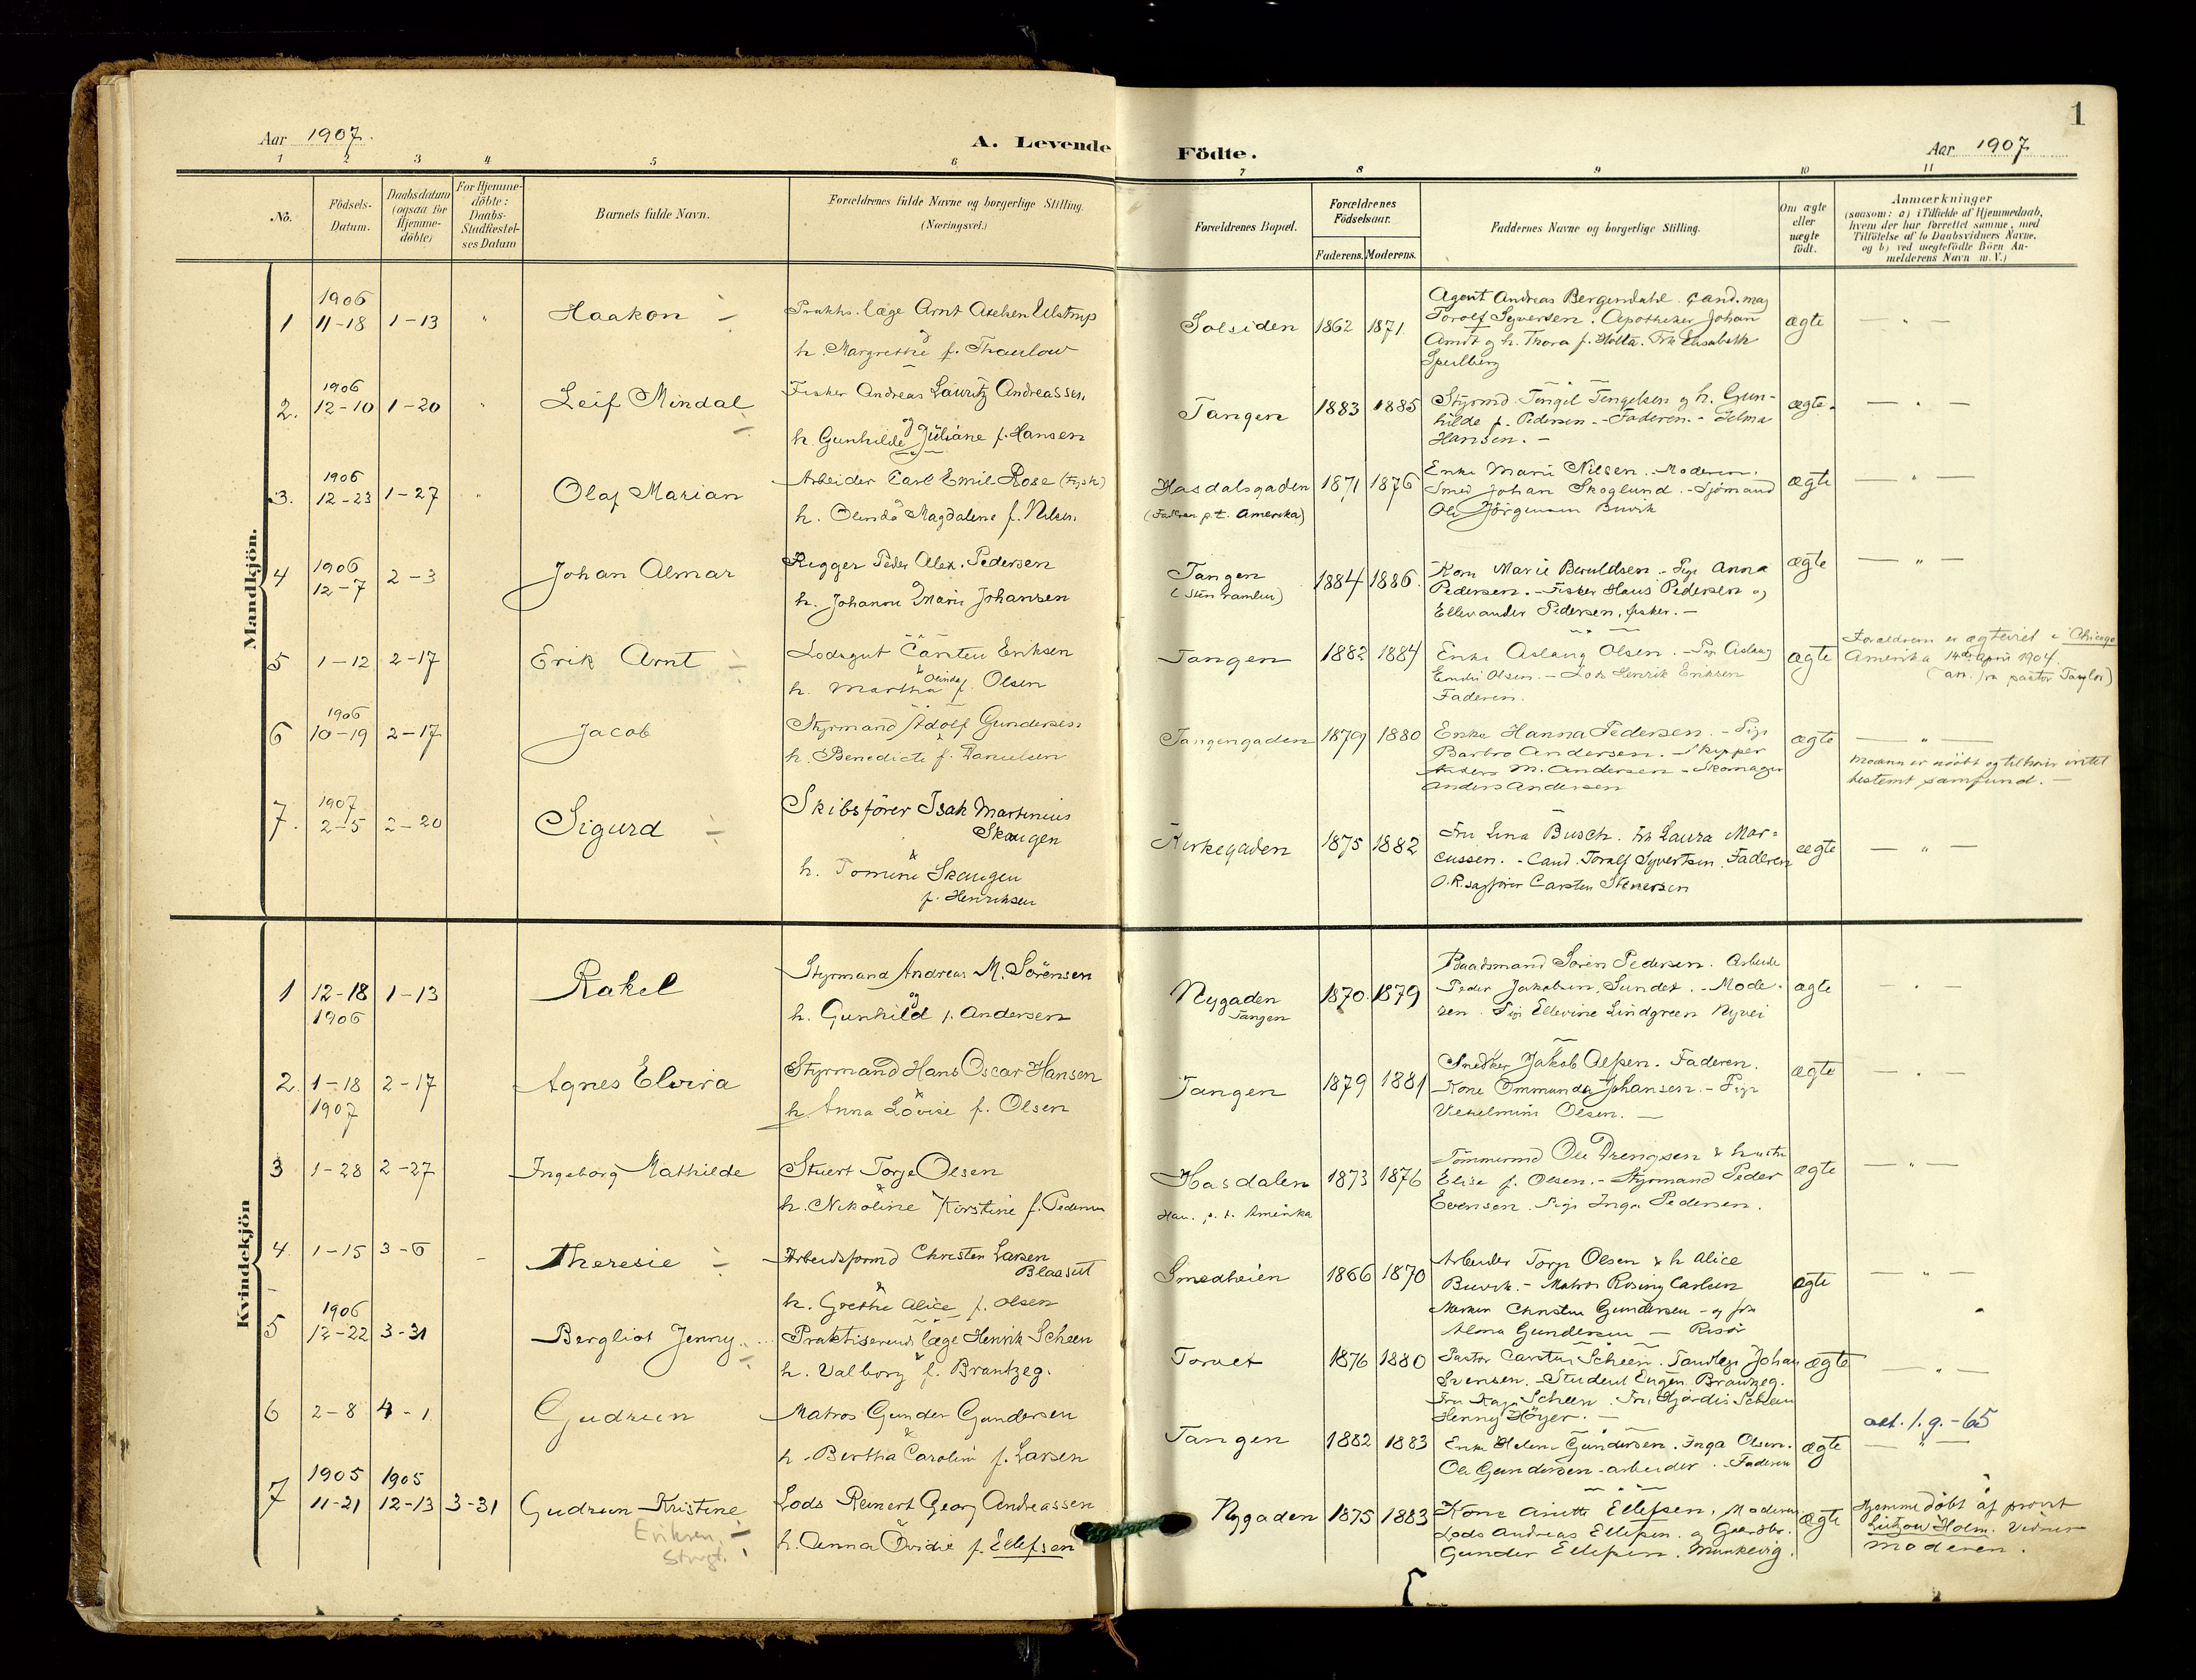 1
Aar 1907.
A. Levende Födte.
Aar 1907
1 2 3 4 5 6 7 8 9 10 11
No.
Födsels-Datum.
Daabsdatum (ogsaa for Hjemme-döbte)
For Hjemme-döbte: Daabs-Stadfæstel-ses Datum
Barnets fulde Navn.
Forældrenes fulde Navne og borgerlige Stilling. (Næringsvei.)
Forældrenes Bopæl.
Forældrenes Födselsaar.
Faderens. Moderens.
Faddernes Navne og borgerlige Stilling.
Om ægte eller uægte födt.
Anmærkninger
(saasom: a) i Tilfælde af Hjemmedaab, hvem der har forrettet samme, med Tilföielse af to Daabsvidners Navne, og b) ved uægtefödte Börn An-melderens Navn m.V.)
Mandkjön.
1 1906 11-18 1-13 " Haakon
Prakts. læge Arnt Axelsen Ulstrup
og
h. Margrethe f. Thaulow
Solsiden 1862 1871.
Agent Andreas Bergendahl. Cand. mag
Toralf Syversen. Apotheker Johan
Arndt og h. Thora f. Holta. Frk Elisabeth
Speilberg
ægte — " —
2. 1906 12-10 1-20 " Leif Mindal
Fisker Andreas Lauritz Andreassen.
og
h. Gunhilde Juliane f. Hansen
Tangen 1883 1885
Styrmd. Tengel Tengelsen og h. Gun-
hilde f. Pedersen - Faderen. - Selma
Hansen. -
ægte. — " —
3. 1906 12-23 1-27 " Olaf Marian
Arbeider Carl Emil Rose (Tysk)
og
h. Olinda Magdalene f. Nilsen.
Hasdalsgaden
(Faderen p.t. Amerika)
1871 1876
Enke Marie Nilsen. - Moderen.
Smed Johan Skoglund. - Sjömand
Ole Jörgensen Buvik
ægte — " —
4 1906 12-7 2-3 Johan Almar
Rigger Peder Alex. Pedersen
og
h. Johanne Marie Johansen
Tangen
1884 1886.
Kone Marie Beruldsen. - Pige Anna
Pedersen. - Fisker Hans Pedersen og
Ellevander Pedersen, fisker. -
ægte — " —
5 1-12 2-17 Erik Arnt
Lodsgut Carsten Eriksen
&
h. Martha Olinda f. Olsen
Tangen 1882 1884
Enke Aslaug Olsen. - Pige Aslaug
Emilie Olsen. - Lods Henrik Eriksen
Faderen.
ægte
Forældrene er ægteviet i Chicago
Amerika 14de april 1904.
pastor Taylor)
6 1906 10-19 2-17 Jacob
Styrmand Adolf Gundersen
&
h. Benedicte f. Danielsen
Tangengaden 1879 1880
Enke Hanna Pedersen. - Pige
Barbro Andersen. - Skipper
Anders M. Andersen - Skomager
Anders Andersen
ægte — " —
Moderen er udöbt og tilhører intet
bestemt samfund. -
7. 1907 2-5 2-20 Sigurd
Skibsförer Isak Martinius
Skaugen
&
h. Tomine Skaugen
f. Henriksen
Kirkegaden 1875 1882
Fru Lina Busch. Frk Laura Mar-
cussen. - Cand. Toralf Syvertsen. Faderen
O.R. sagförer Carsten Stenersen
ægte — " —
Kvindekjön
1 12-18 1906 1-13 Rakel
Styrmand Andreas M. Sörensen
og
h. Gunhild f. Andersen
Nygaden
Tangen
1870. 1879
Baadsmand Sören Pedersen. Arbeider
Peder Jakobsen, Sundet. - Mode-
ren. Pige Ellevine Lindgreen Nyvei
ægte — " —
2. 1-18 1907 2-17 Agnes Elvira
Styrmand Hans Oscar Hansen
&
h. Anna Lovise f. Olsen
Tangen 1879 1881
Snedker Jakob Alfsen. Faderen.
Kone Ommunda Johansen. - Pige
Vilhelmine Olsen. -
ægte — " —
3 1-28 2-27 Ingeborg Mathilde
Stuert Torje Olsen
&
h. Nikoline Kirstine f. Pedersen
Hasdalen
Han p.t. Amerika
1873 1876
Tömmermd Ole Drengsen & hustru
Elise f. Olsen. - Styrmand Peder
Evensen. Pige Inga Pedersen.
ægte — " —
4. 1-15 3-6 - Theresie
Arbeidsformd Christen Larsen
Blaasut
&
h. Grethe Alice f. Olsen
Smedheien 1866 1870
Arbeider Torje Olsen & h Alice
Buvik. - Matros Rosing Carlsen
Christen Gundersen - og frk
Alma Gundersen - Risör
ægte — " —
5 1906 12-22 3-31 Bergliot Jenny
Praktiserende læge Henrik Scheen
&
h. Valborg f. Brantzeg.
Torvet 1876 1880
Pastor Carsten Scheen. Tandlæge Johan
Svensen. - Student Eugen Brantzeg.
Fru Kaja Scheen. Fru Hjördis Scheen
Henny Höyer. -
ægte — " —
6 2-8 4-1 Gudrun
Matros Gunder Gundersen
&
h. Bertha Caroline f. Larsen
Tangen 1882 1883
Enke Helene Gundersen. Inga Olsen.
Ole Gundersen - arbeider. - Faderen
ægte
att. 1.9.-65
— " —
7 1905 11-21 1905 12-13 3-31 Gudrun Kristine
Eriksen
Lods Reinert Georg Andreassen
&
h. Anna Ovidie f. Ellefsen
Nygaden 1875 1883
Kone Anette Ellefsen. Moderen
Lods Andreas Ellefsen. og Gaardbr.
Gunder Ellefsen. Munkevig.
ægte
Hjemmedöbt af provst
Lützow Holm. Vidner
moderen.